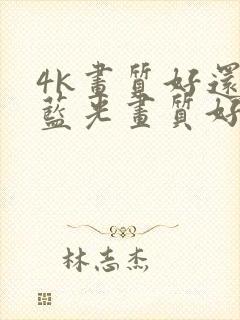 4K畫質好還
藍光畫質好
林志杰